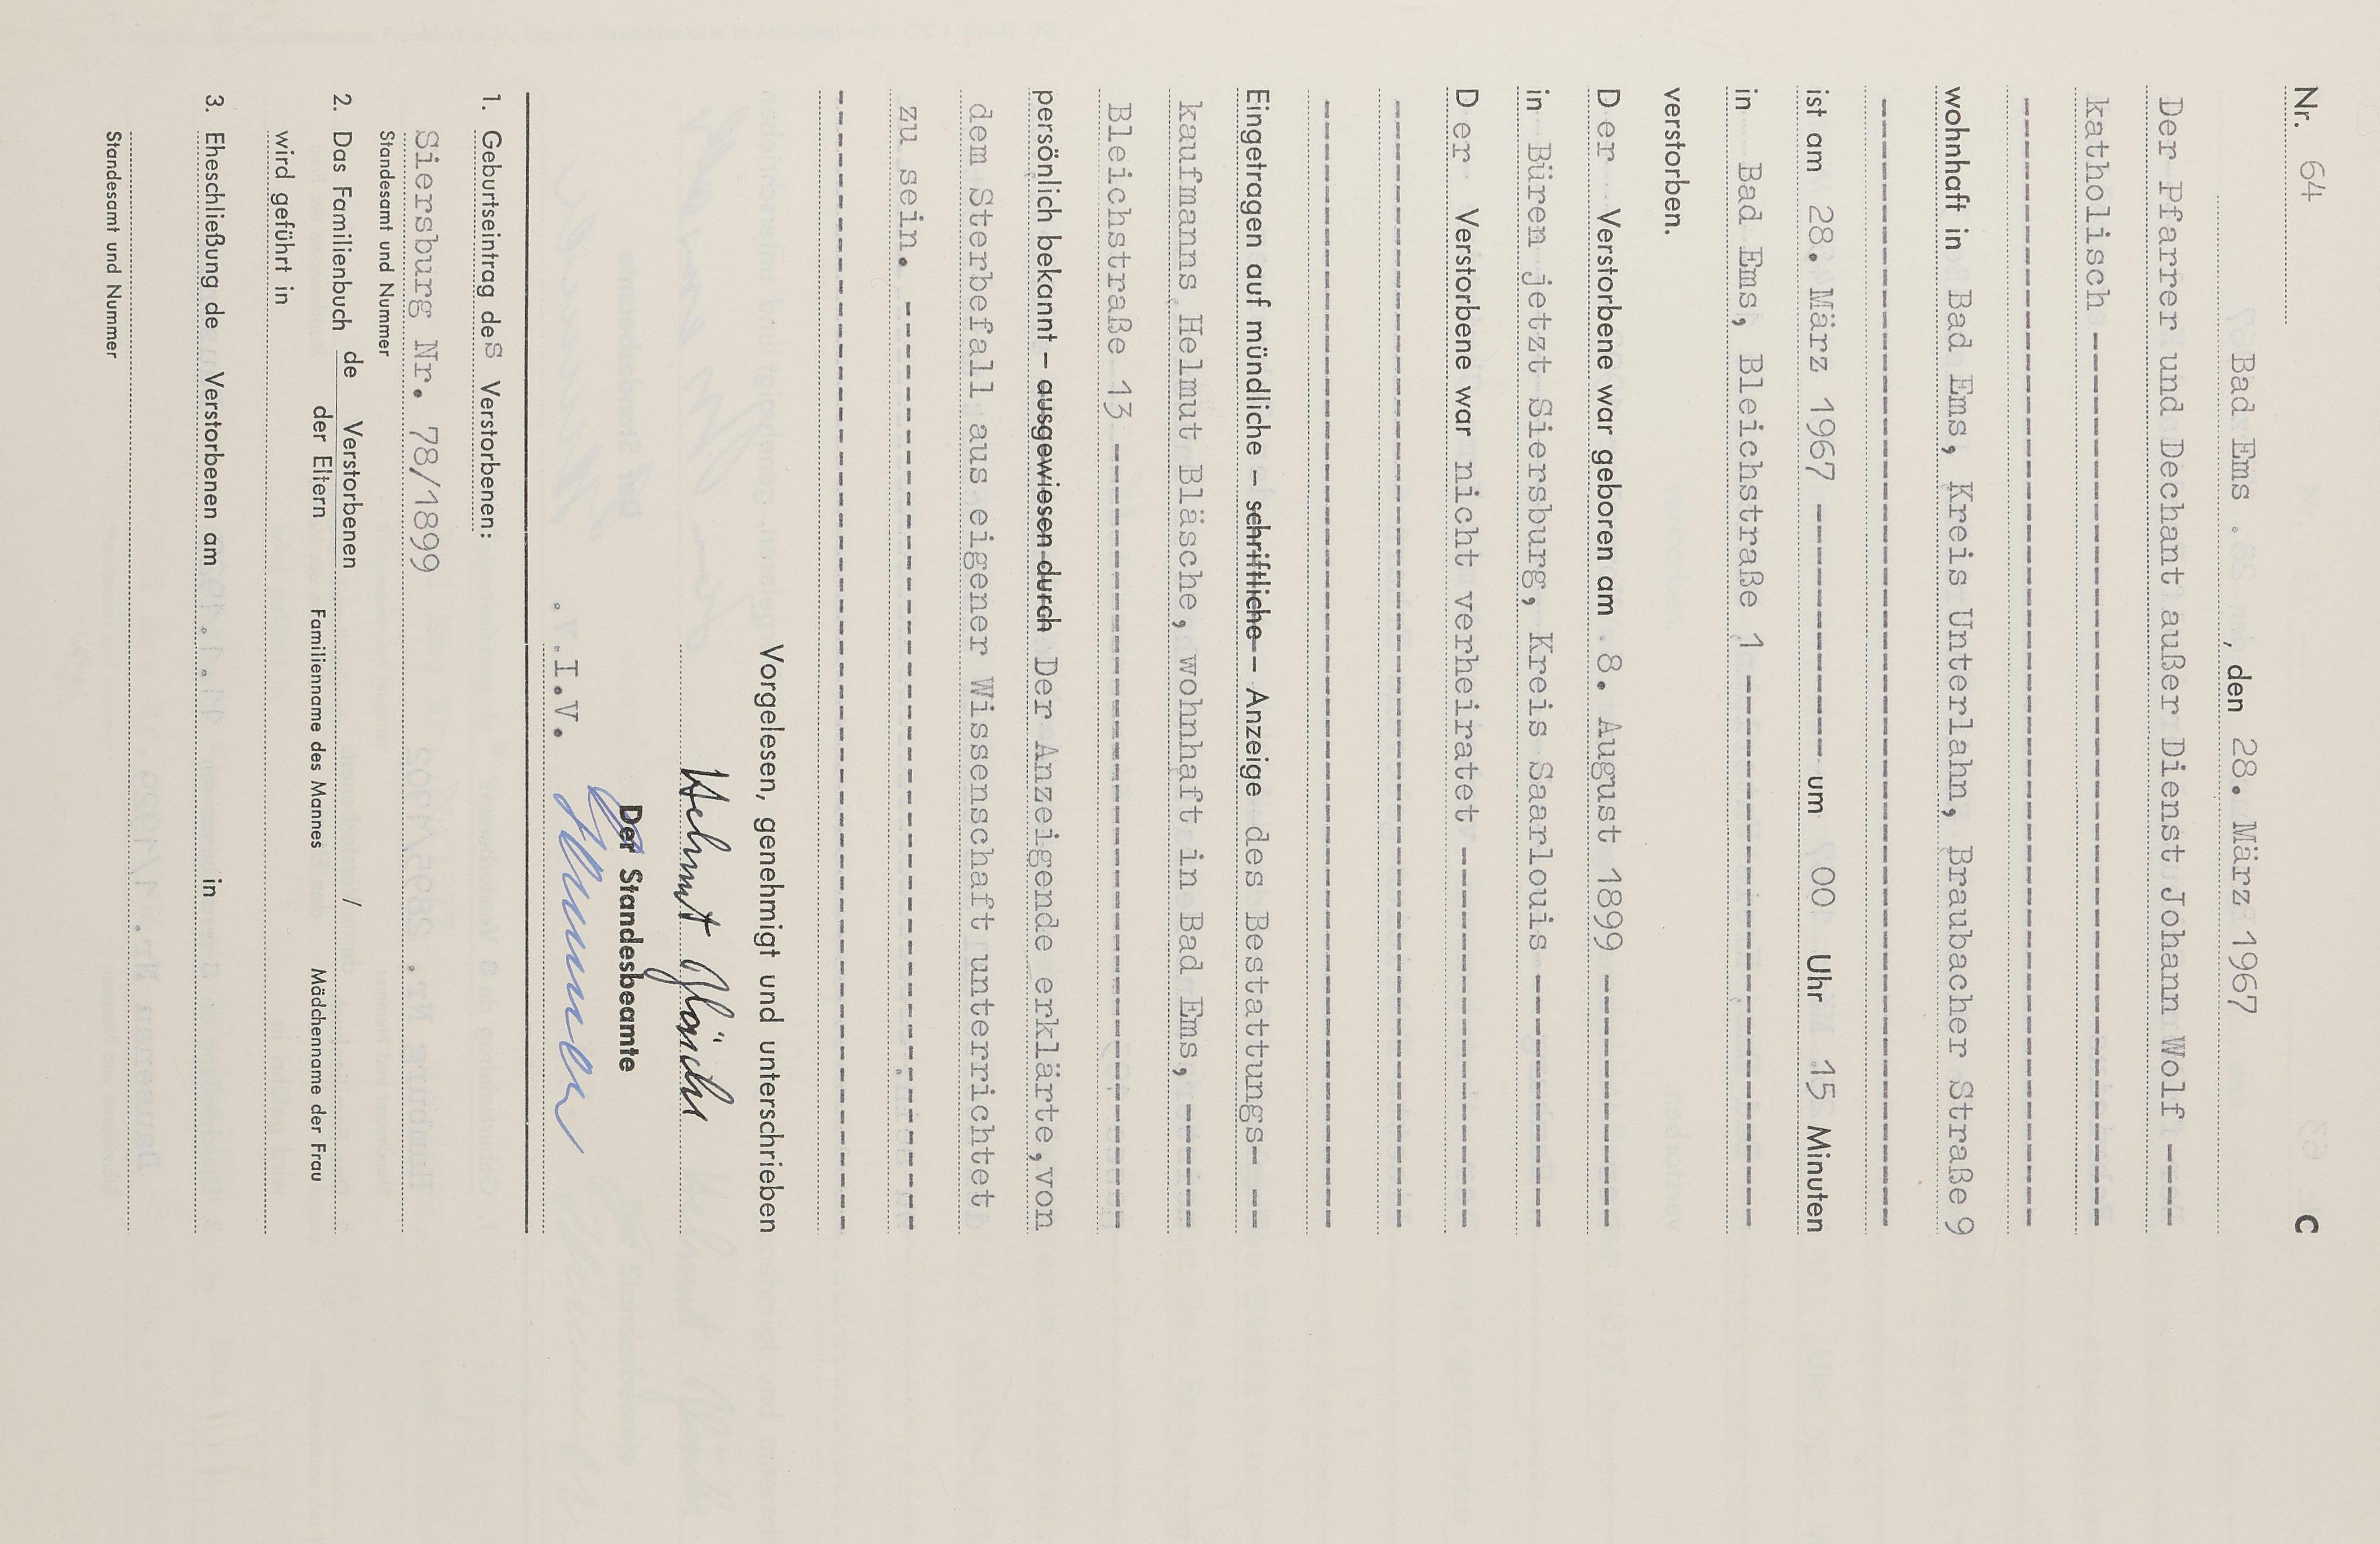 Nr. 64 C
Bad Ems, den 28. März 1967
Der Pfarrer und Dechant außer Dienst Johann Wolf ----
katholisch ----------
wohnhaft in Bad Ems, Kreis Unterlahn, Braubacher Straße 9
ist am 28. März 1967 ---------- um 00 Uhr 15 Minuten
in Bad Ems, Bleichstraße 1 ----------
verstorben.
Der Verstorbene war geboren am 8. August 1899 ----------
in Büren jetzt Siersburg, Kreis Saarlouis ----------
Der Verstorbene war nicht verheiratet ----------
Eingetragen auf mündliche – schriftliche – Anzeige des Bestattungs- --
kaufmanns Helmut Bläsche, wohnhaft in Bad Ems, ------
Bleichstraße 13 ----------
persönlich bekannt – ausgewiesen durch Der Anzeigende erklärte, von
dem Sterbefall aus eigener Wissenschaft unterrichtet
zu sein. ----------
Vorgelesen, genehmigt und unterschrieben
Helmut Bläsche
Der Standesbeamte
I.V.
1. Geburtseintrag des Verstorbenen:
Siersburg Nr. 78/1899
Standesamt und Nummer
2. Das Familienbuch de Verstorbenen /
der Eltern Familienname des Mannes Mädchenname der Frau
wird geführt in
3. Eheschließung de Verstorbenen am in
Standesamt und Nummer